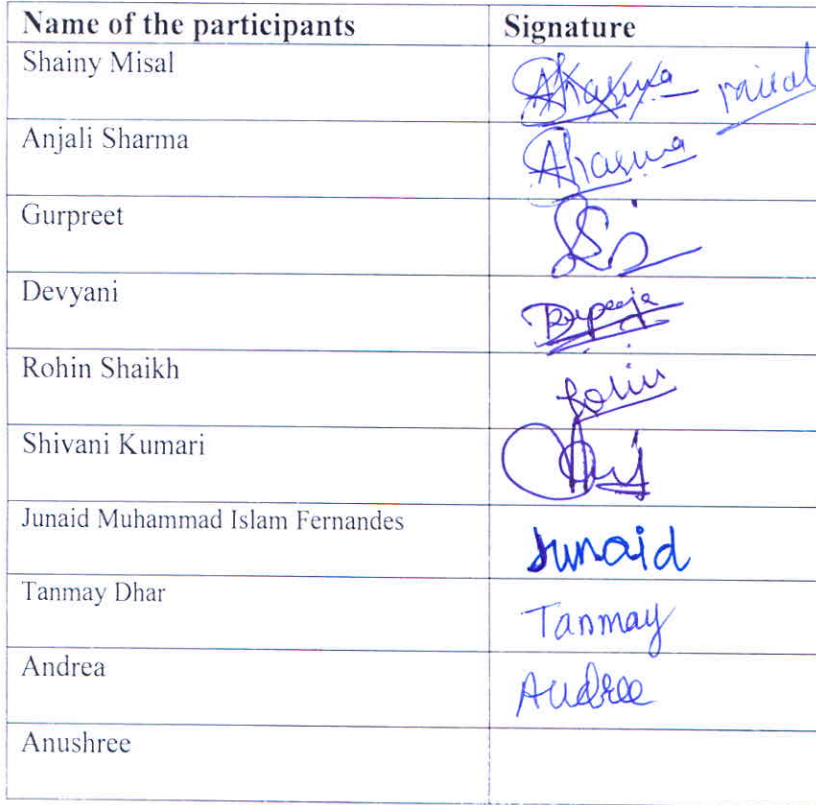 Name of the participants Signature
Shainy Misal Asharma misal
Anjali Sharma Asharma
Gurpreet
Devyani
Rohin Shaikh Rohin
Shivani Kumari
Junaid Muhammad Islam Fernandes Junaid
Tanmay Dhar Tanmay
Andrea
Anushree